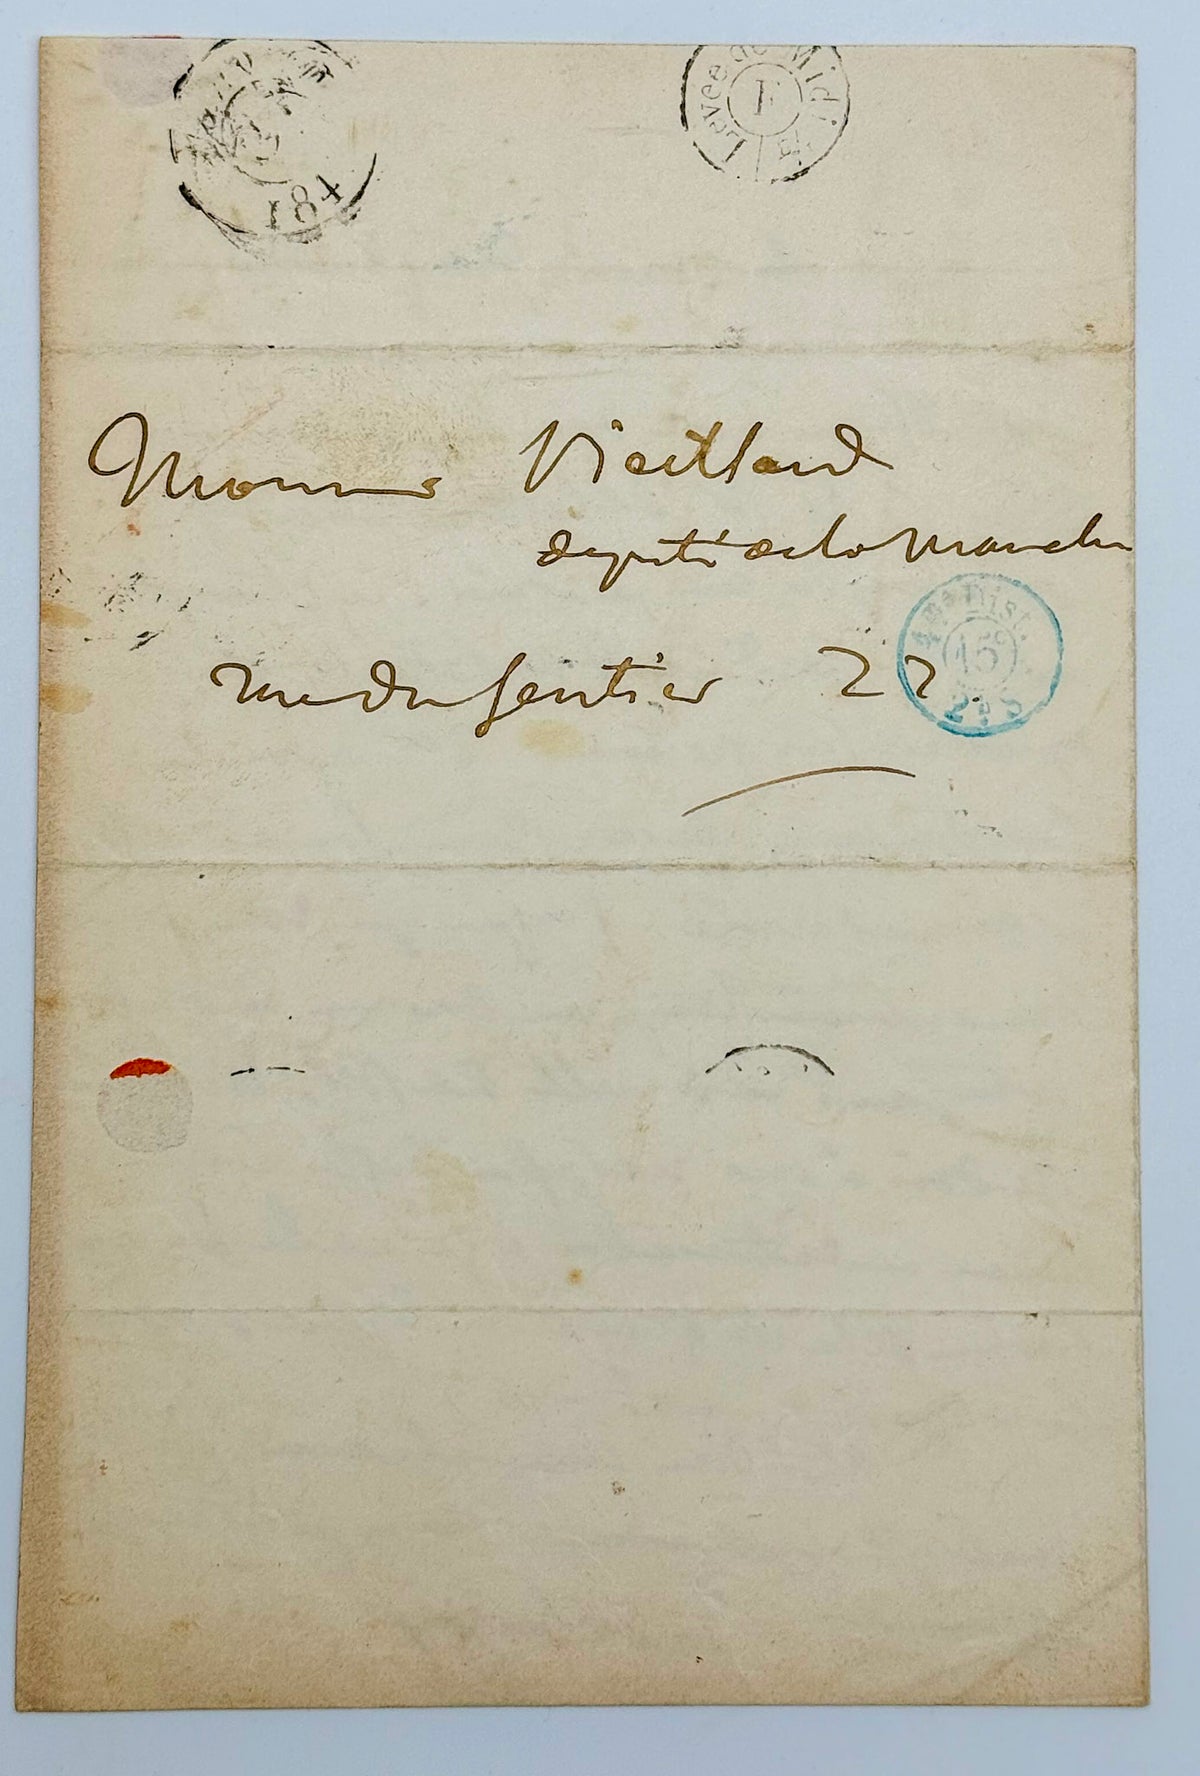 Levée de Midi
E
184
Monsieur Vieillard
député de la Manche
4me Dist.
15
2 4 S
rue du Sentier 22